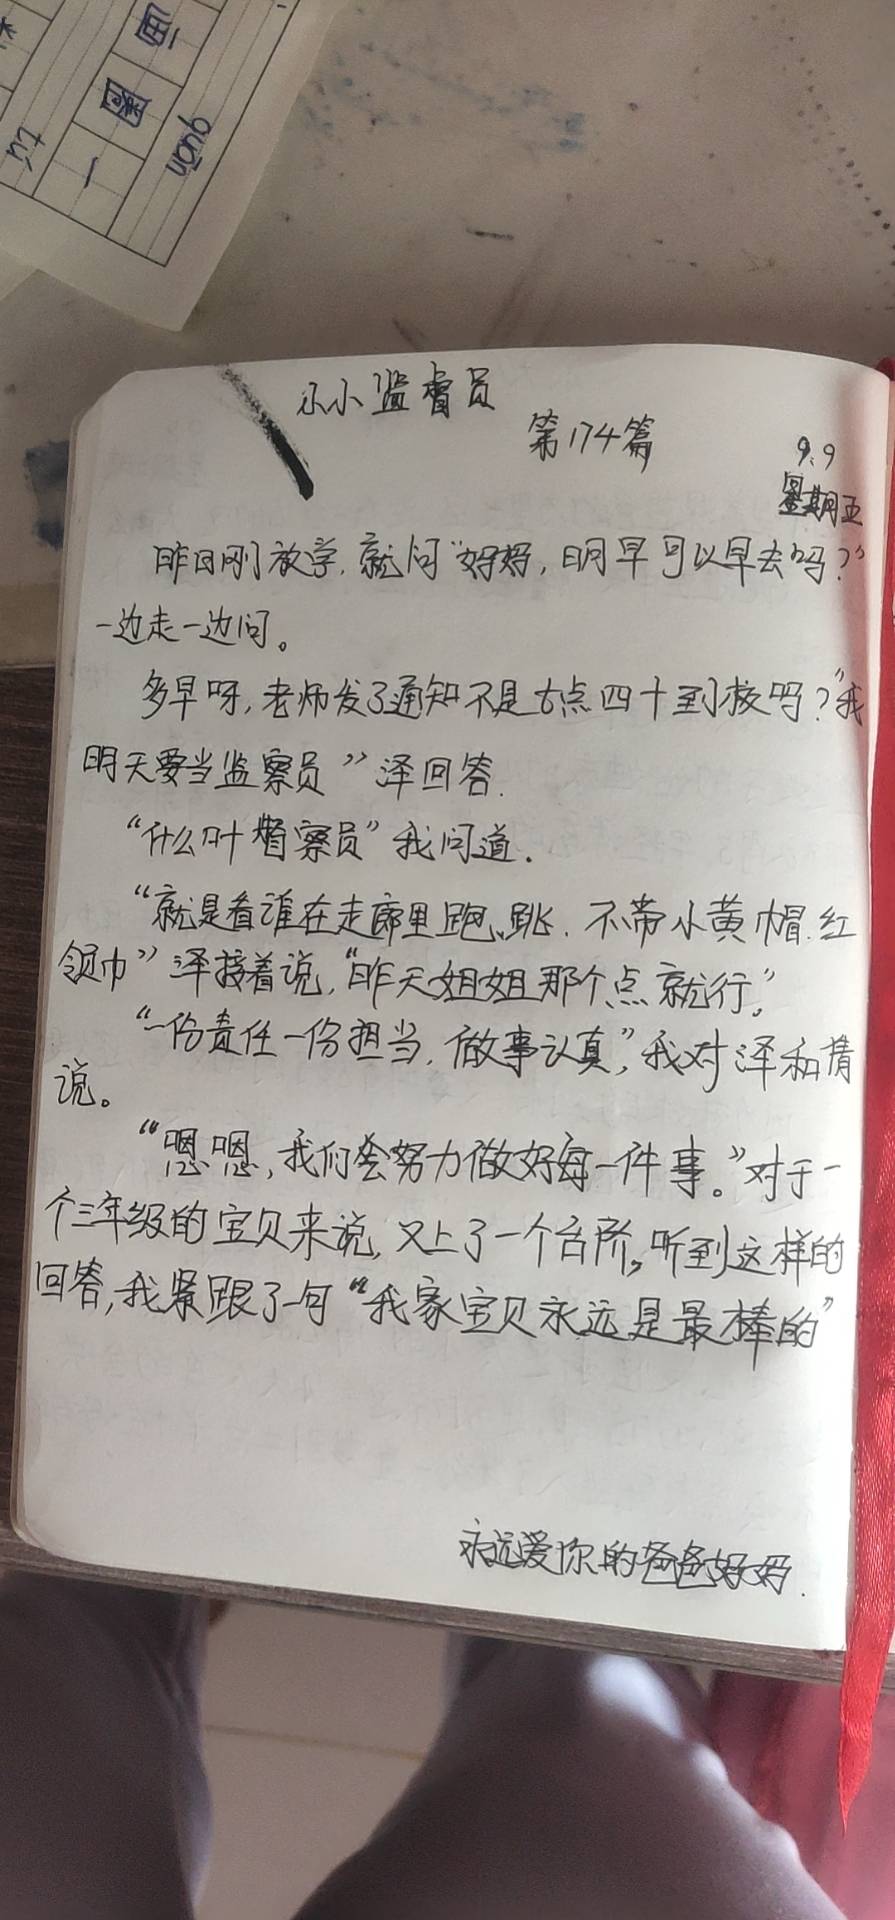 画
圈
一
quān
tú
小小监督员
第174篇
9.9
星期五
昨日刚放学.就问"妈妈,明早可以早去吗?"
一边走一边问。
多早呀,老师发了通知不是七点四十到校吗?"我
明天要当监察员"泽回答.
"什么叶督察员"我问道.
"就是看谁在走廊里跑、跳.不带小黄帽.红
领巾"泽接着说,"昨天姐姐那个点就行。"
"一份责任一份担当,做事认真",我对泽和倩
说。
"嗯嗯,我们会努力做好每一件事。"对于一
个三年级的宝贝来说,又上了一个台阶。听到这样的
回答,我紧跟了一句"我家宝贝永远是最棒的"
永远爱你的爸爸妈妈.